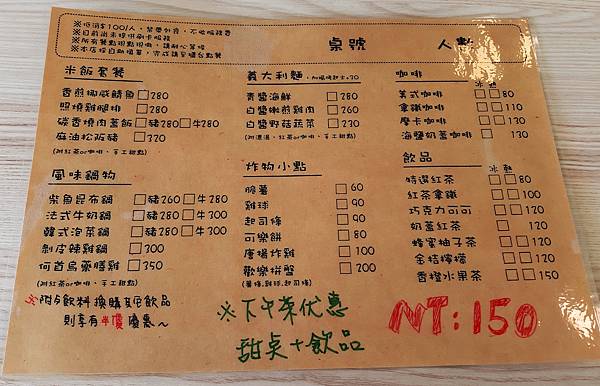 ※低消$100/人, 禁帶外食, 不收服務費
※目前尚未提供刷卡服務
※所有餐點現點現做, 請耐心等候
※本店採自助值單, 完成請至櫃台點餐
桌號 人數
米飯套餐
香煎挪威鯖魚 □280
照燒雞腿排 □280
碳香燒肉蓋飯 □豬280 □牛280
麻油松阪豬 □320
(附紅茶or咖啡、手工甜點)
風味鍋物
柴魚昆布鍋 □豬260 □牛280
法式牛奶鍋 □豬280 □牛300
韓式泡菜鍋 □豬280 □牛300
剝皮辣雞鍋 □300
何首烏藥膳雞 □350
(附紅茶or咖啡、手工甜點)
※附方飲料換購其他飲品
則享有半價優惠~
義大利麵,加焗烤起士+70
青醬海鮮 □280
白醬嫩煎雞肉 □260
白醬野菇蔬菜 □230
(附濃湯、紅茶or咖啡、手工甜點)
炸物小點
脆薯 □60
雞球 □90
起司條 □90
可樂餅 □80
廣場炸雞 □100
歡樂拼盤 □200
(薯條,雞球,起司條)
※下午茶优惠
甜桌+飲品
NT:150
咖啡
冰 熱
美式咖啡 □□80
拿鐵咖啡 □□110
摩卡咖啡 □□130
海鹽奶蓋咖啡 □ 130
飲品
冰 熱
特選紅茶 □□80
紅茶拿鐵 □□100
巧克力可可 □□120
奶蓋紅茶 □ 120
蜂蜜柚子茶 □□120
金桔檸檬 □□120
香橙水果茶 □□150